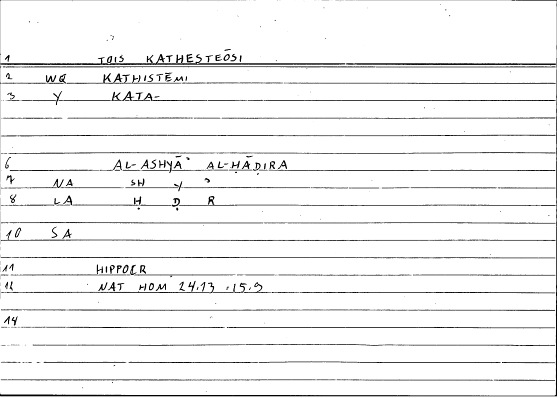 1 TOIS KATHESTEŌSI
2 WQ KATHISTĒMI
3 Y KATA-
6 AL-ASHYĀʾ AL-ḤĀḌIRA
7 NA SH Y ʾ
8 LA Ḥ Ḍ R
10 SA
11 HIPPOCR
12 NAT HOM 24.13 .15.9
14